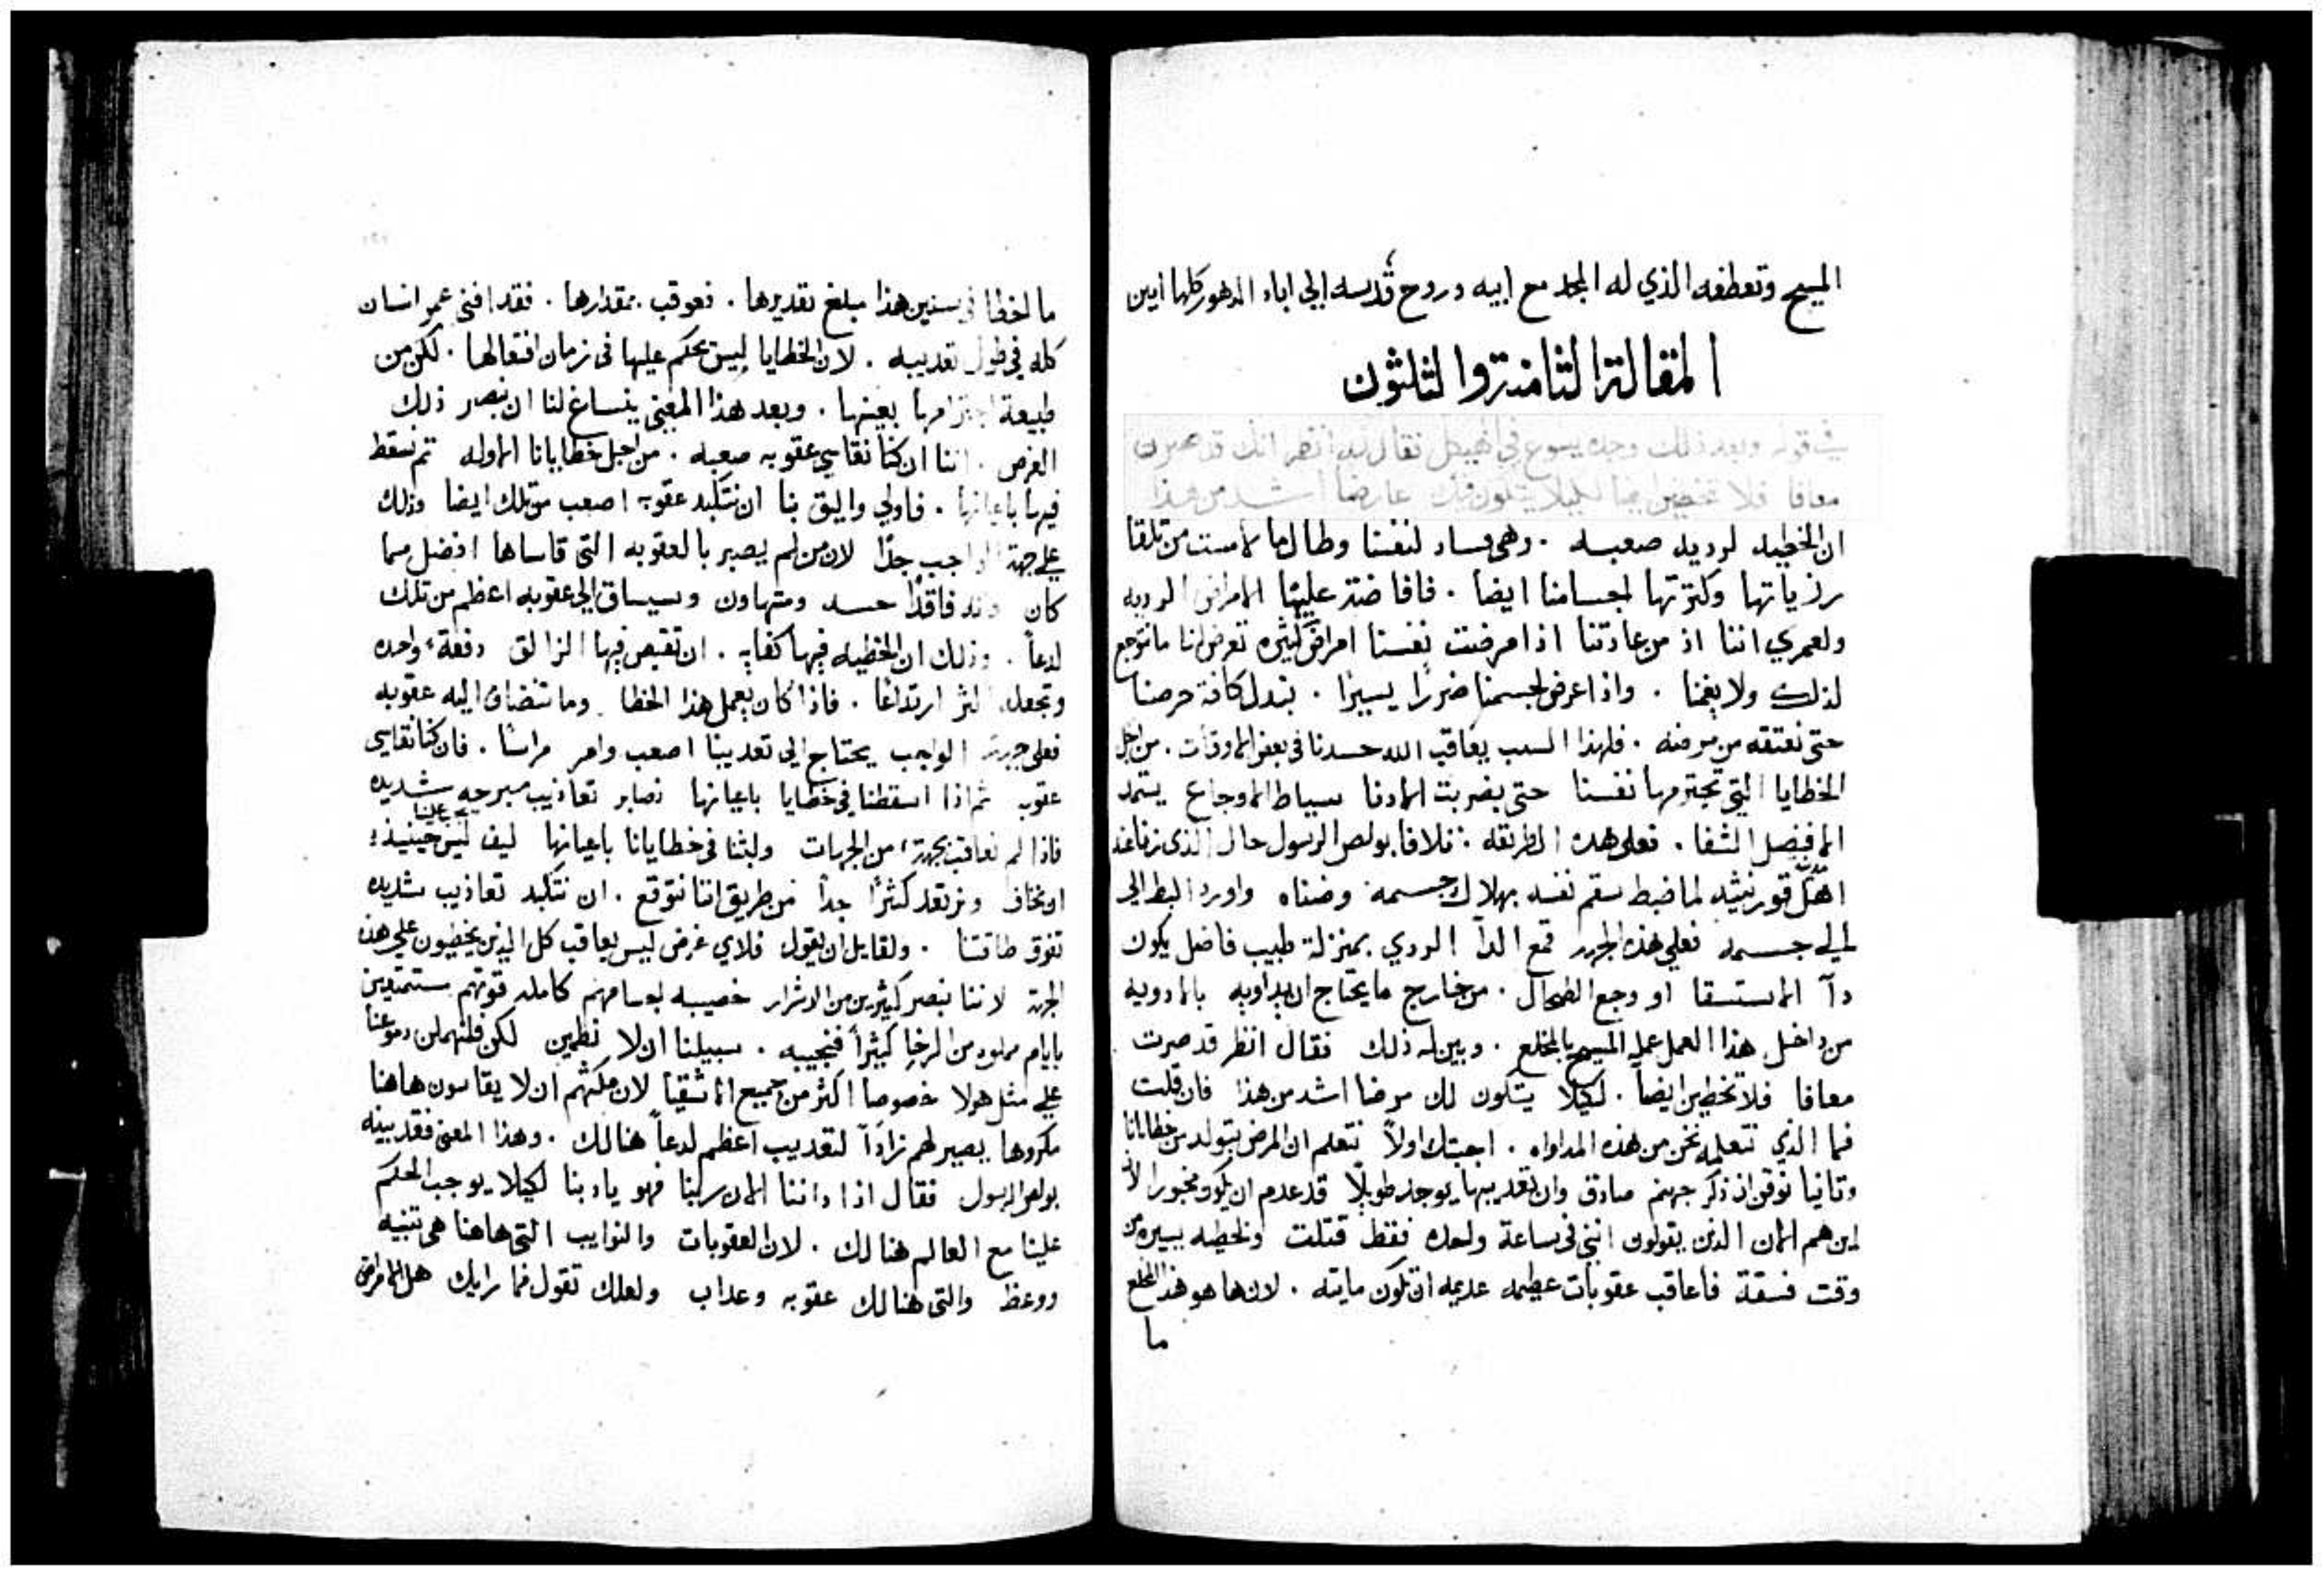 المسيح وتعطفه الذي له المجد مع ابيه وروح قدسه الي اباد الدهور كلها امين
المقالة الثامنة والثلثون
في قوله وبعد ذلك وجده يسوع في الهيكل فقال له انظر انك قد صرت
معافا فلا تخطين ايضا لكيلا يتكون لك عارضا اشد من هذا
ان الخطيه لرديه صعبه . وهي فساد لنفسنا وطال ما لامست من تلقا
رزياتها وكثرتها اجسامنا ايضا . فافاضت علينا الامراض الرديه
ولعمري اننا اذ من عادتنا اذا مرضت نفسنا امراض كثيره تعرض لنا ما نتوجع
لذلك ولا يغمنا . واذا عرض لجسمنا ضررا يسيرا . نبدل كافة حرصنا
حتى نعتقه من مرضه . فلهذا السبب يعاقب الله جسدنا في بعض الاوقات . من اجل
الخطايا التي تجترمها نفسنا حتى بضربت الادنا بسياط الاوجاع يستمد
الافضل الشفا . فعلى هذه الطريقه فلافا بولص الرسول حال الذي زنا عند
اهل قورنثيه لما ضبط سقم نفسه بهلاك جسمه وضناه واورد البط الي
الي جسمه فعلي هذه الجهه قمع الدآ الردي بمنزلة طبيب فاضل يكون
دآ الاستسقا او وجع الطحال . من خارج ما يحتاج ان يداويه بالادويه
من داخل هذا العمل عمله المسيح بالمخلع . وبين له ذلك فقال انظر قد صرت
معافا فلا تخطين ايضاً . لكيلا يتكون لك مرضا اشد من هذا فان قلت
فما الذي نتعلمه نحن من هذه المداواه . اجبتك اولاً نتعلم ان المرض يتولد من خطايانا
وثانيا نوقن ان ذكر جهنم صادق وان تعذيبها يوجد طويلاً قد عدم ان يكون
اين هم الان الذين يقولون انني في ساعة واحده فقط قتلت ولحظه يسيره من
وقت فسقة فاعاقب عقوبات عظيمه عديمه ان تكون مايته . لان ها هو هذا المخلع
ما
ما اخطا في سنين هذا مبلغ تقديرها . فعوقب بمقدارها . فقد افنى عمر انسان
كله في طول تعذيبه . لان الخطايا ليس يحكم عليها في زمان افتعالها . لكن من
طبيعة اجترامها بعينها . وبعد هذا المعنى ينساغ لنا ان نبصر ذلك
الغرض . اننا ان كنا نقاسي عقوبه صعبه . من اجل خطايانا الاوله ثم نسقط
فيها باعيانها . فاولي واليق بنا ان نتكبد عقوبه اصعب من تلك ايضا وذلك
علي جهة الواجب جدًا لان من لم يصير بالعقوبه التي قاساها افضل مما
كان فاقدًا حسه ومتهاون وسيساق الي عقوبه اعظم من تلك
لدعاً . وذلك ان الخطيه فيها كفايه . ان تقبض فيها الزالق دفعةً واحده
وتجعله اكثر ارتداعا . فاذا كان يعمل هذا الخطا وما تنضاف اليه عقوبه
فعلي جهة الواجب يحتاج الي تعذيبنا اصعب وامر مراسًا . فان كنا نقاسي
عقوبه ثم اذا اسقطنا في خطايا باعيانها نصابر تعاذيب مبرحه شديده
فاذا لم نعاقب بجهةٍ من الجهات ولبثنا في خطايانا باعيانها ليف ليس علينا حينيذٍ
ان نخاف ونرتعد كثرًا جداً من طريق اننا نتوقع . ان نتكبد تعاذيب شديده
تفوق طاقتنا . ولقايل ان يقول فلاي غرض ليس يعاقب كل الذين يخطيون علي هذه
الجهة لاننا نبصر كثيرين من الاشرار خصيبه اجسامهم كامله قوتهم مستمتعين
بايام مملوه من الرخا كثيراً فنجيبه . سبيلنا ان لا نطمين لكن فلنهملن دموعناً
علي مثل هولا خصوصاً اكثر من جميع الاشقيا لان مكثهم ان لا يقاسون هاهنا
مكروها يصير لهم زادًا لتعذيب اعظم لدعاً هنالك . وهذا المعنى فقد بينه
بولص الرسول فقال اذا داننا الان ربنا فهو يادبنا لكيلا يوجب الحكم
علينا مع العالم هنالك . لان العقوبات والنوايب التي هاهنا هي تنبيه
ووعظ والتي هنالك عقوبه وعذاب ولعلك تقول فما رايك هل الامراض